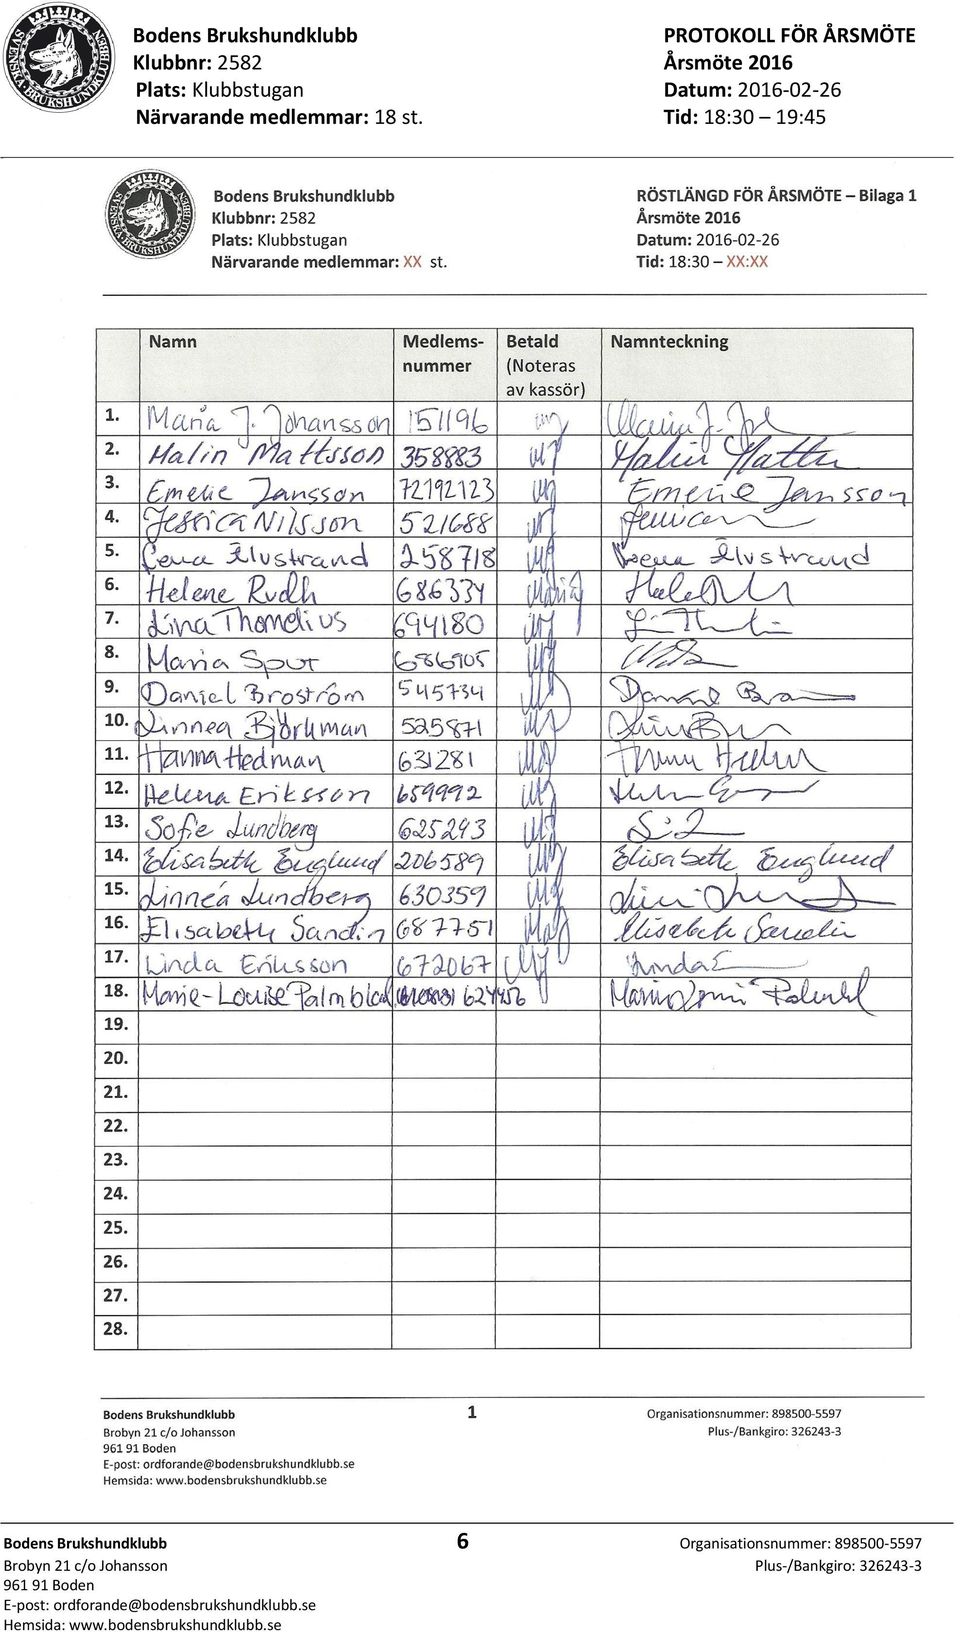 SVENSKA BRUKSHUNDKLUBBEN
Bodens Brukshundklubb PROTOKOLL FÖR ÅRSMÖTE
Klubbnr: 2582 Årsmöte 2016
Plats: Klubbstugan Datum: 2016-02-26
Närvarande medlemmar: 18 st. Tid: 18:30 – 19:45
SVENSKA BRUKSHUNDKLUBBEN
Bodens Brukshundklubb RÖSTLÄNGD FÖR ÅRSMÖTE – Bilaga 1
Klubbnr: 2582 Årsmöte 2016
Plats: Klubbstugan Datum: 2016-02-26
Närvarande medlemmar: XX st. Tid: 18:30 – XX:XX
Namn Medlems- Betald Namnteckning
nummer (Noteras
av kassör)
1. Maria J. Johansson 151196
2. Malin Mattsson 358883 Malin Matts
3. Emelie Jansson 72192123 Emelie Jansson
4. Jessica Nilsson 521688
5. Leena Älvstrand 258718 Leena Älvstrand
6. Helene Rudh 686334
7. Lina Thomelius 694180
8. Maria Spur 686905
9. Daniel Broström 545734 Daniel
10. Linnea Björkman 525871
11. Hanna Hedman 631281
12. Helena Eriksson 659992
13. Sofie Lundberg 625293
14. Elisabeth Englund 206589 Elisabeth Englund
15. Linnéa Lundberg 630359
16. Elisabeth Sandin 687751 Elisabeth Sandin
17. Linda Eriksson 672067 Linda E
18. Marie-Louise Palmblad 624456
19.
20.
21.
22.
23.
24.
25.
26.
27.
28.
Bodens Brukshundklubb 1 Organisationsnummer: 898500-5597
Brobyn 21 c/o Johansson Plus-/Bankgiro: 326243-3
961 91 Boden
E-post: ordforande@bodensbrukshundklubb.se
Hemsida: www.bodensbrukshundklubb.se
Bodens Brukshundklubb 6 Organisationsnummer: 898500-5597
Brobyn 21 c/o Johansson Plus-/Bankgiro: 326243-3
961 91 Boden
E-post: ordforande@bodensbrukshundklubb.se
Hemsida: www.bodensbrukshundklubb.se